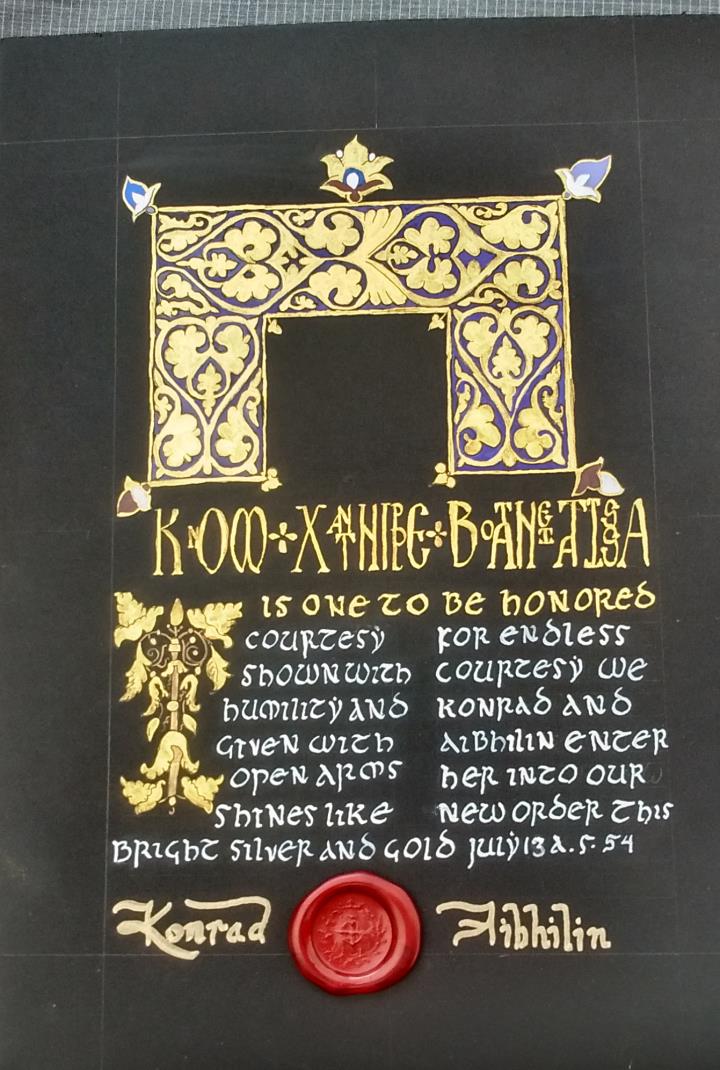 KNOW XANTHIPPE BOTANEIATISSA
IS ONE TO BE HONORED
COURTESY
SHOWN WITH
HUMILITY AND
GIVEN WITH
OPEN ARMS
SHINES LIKE
BRIGHT SILVER AND GOLD
FOR ENDLESS
COURTESY WE
KONRAD AND
AIBHILIN ENTER
HER INTO OUR
NEW ORDER THIS
JULY 13 A.S. 54
Konrad
Aibhilin